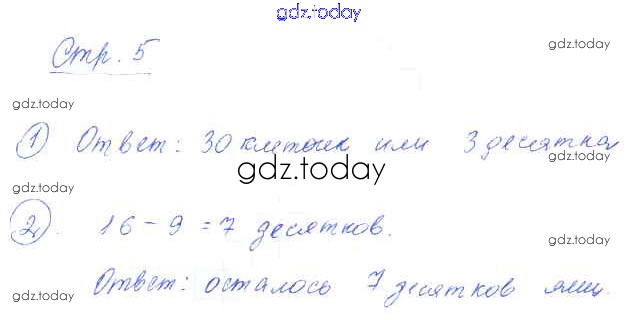 gdz.today
Стр. 5
gdz.today
gdz.today
① Ответ: 30 клеток или 3 десятка
gdz.today
gdz.today
gdz.today
②. 16 - 9 = 7 десятков.
gdz.today
Ответ: осталось 7 десятков яиц.
gdz.today
gdz.today